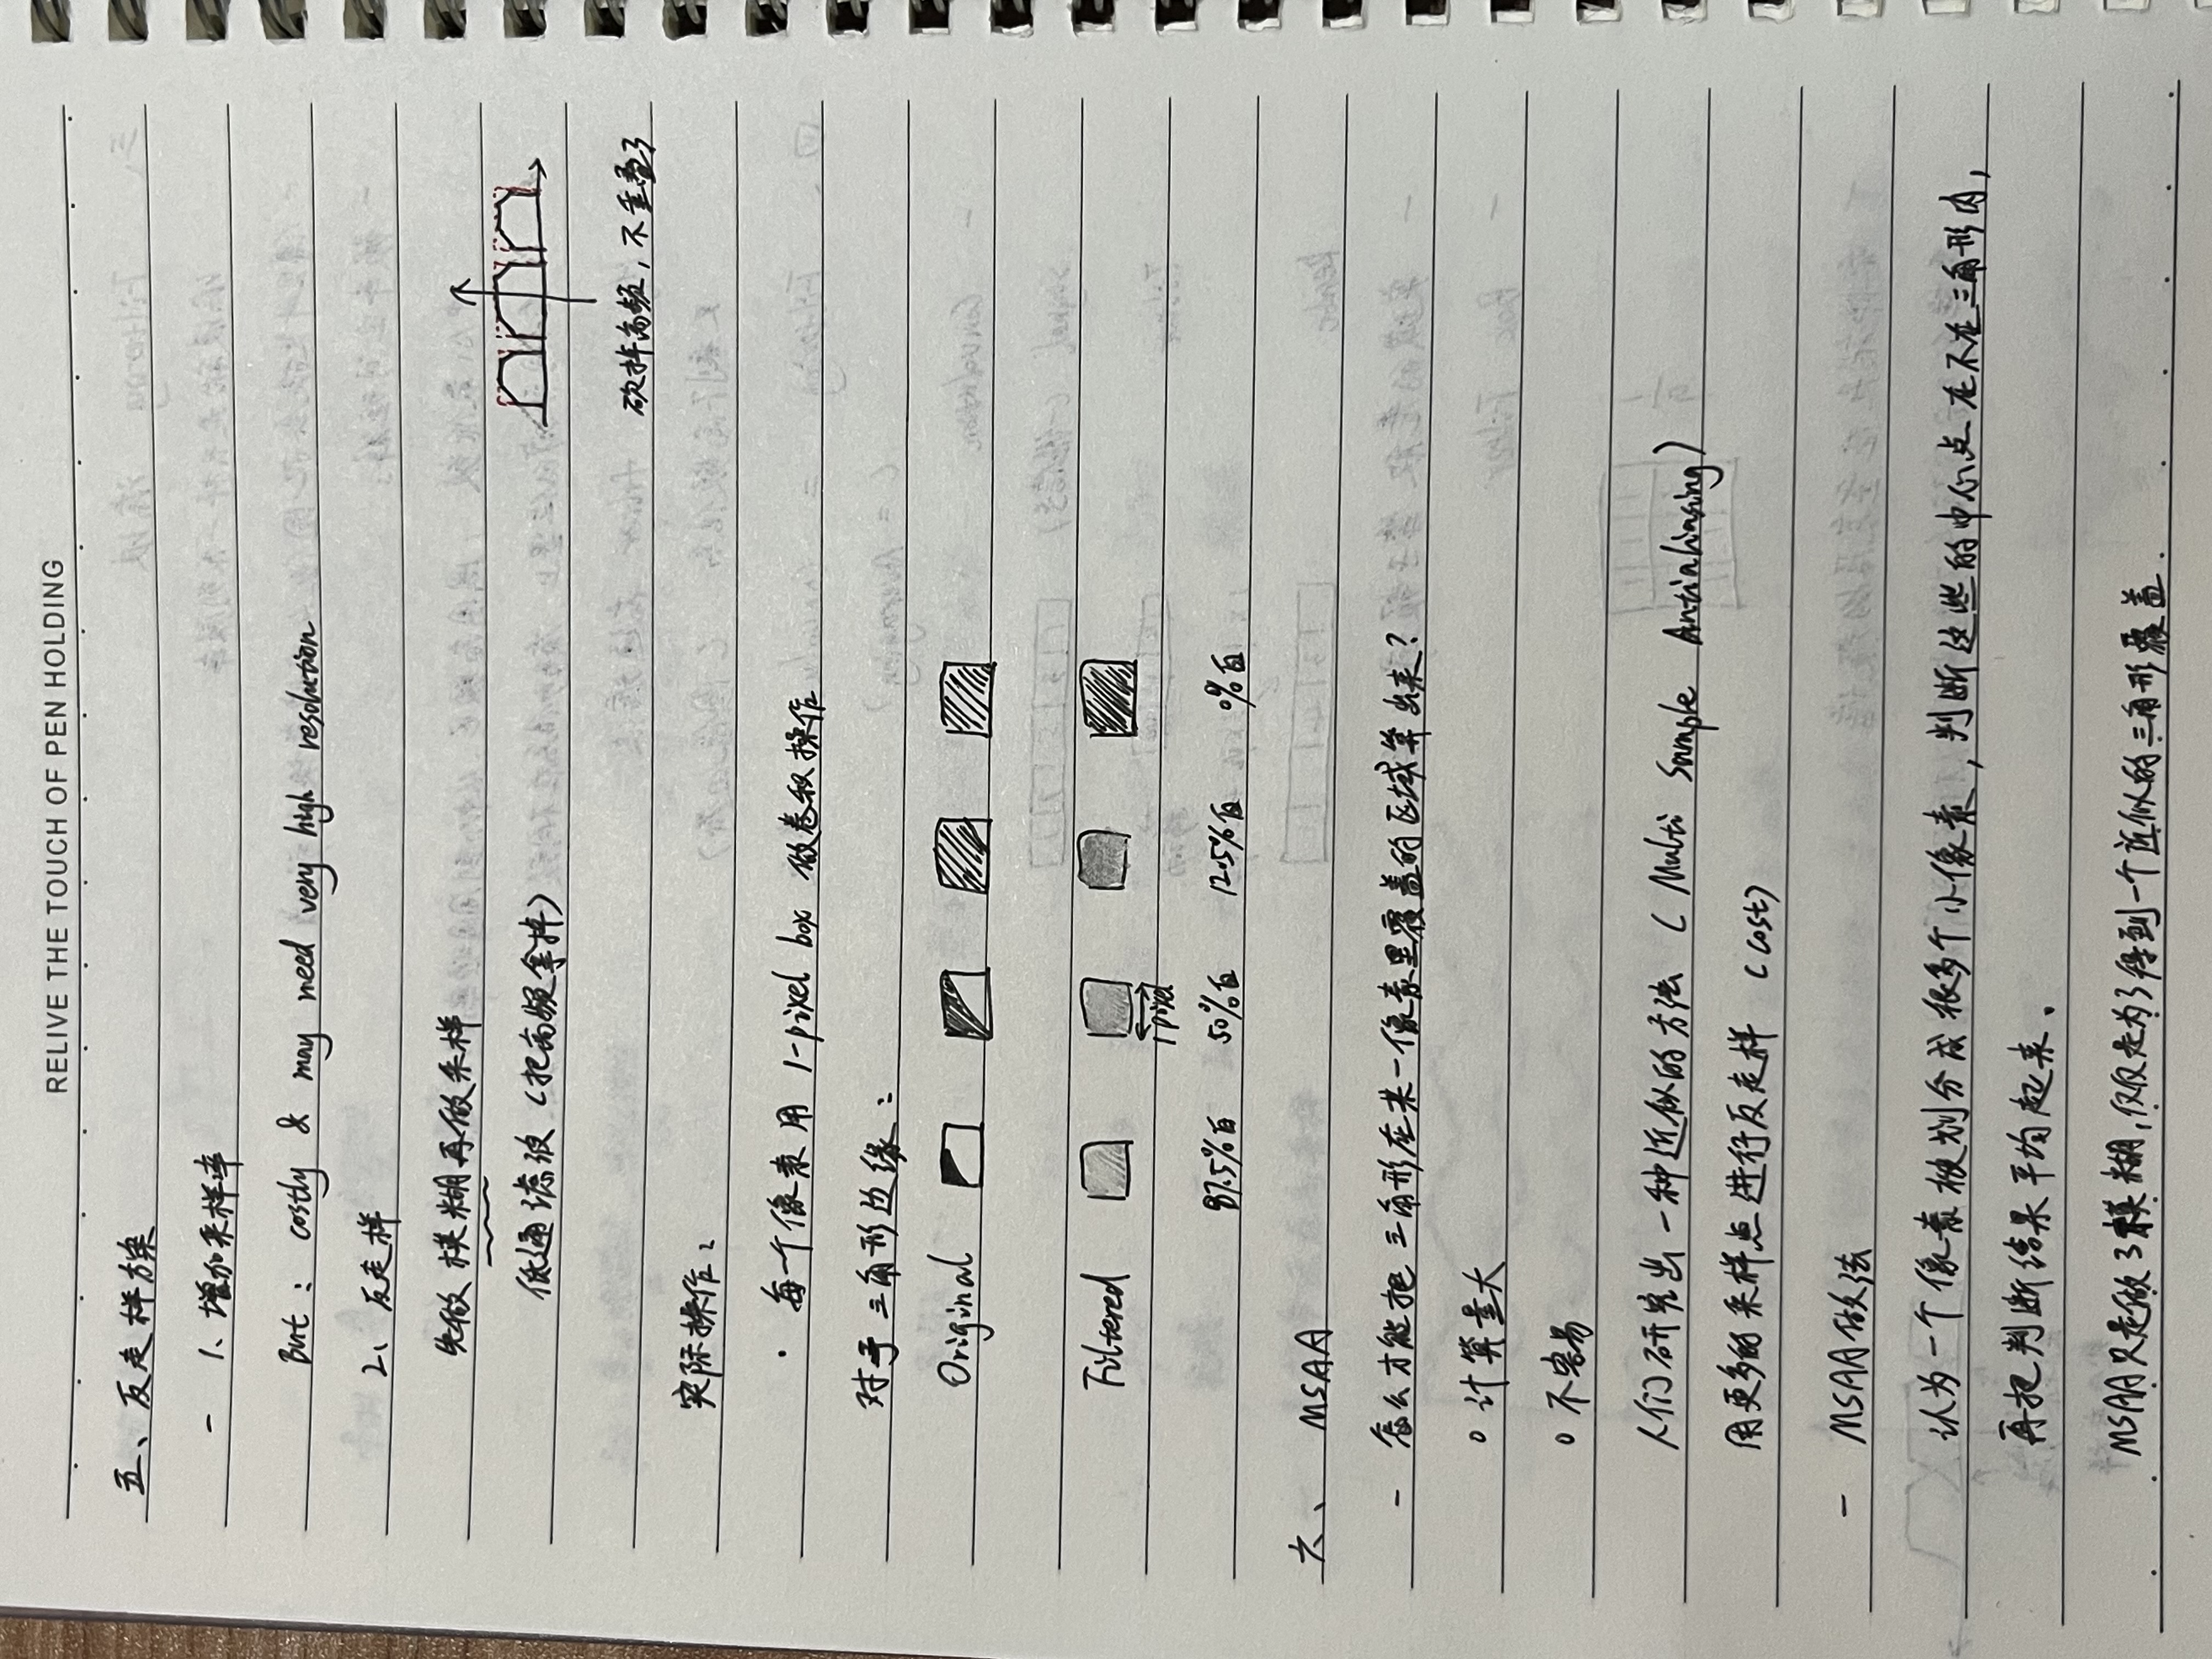 RELIVE THE TOUCH OF PEN HOLDING
五、反走样方案
- 1、增加采样率
But: costly & may need very high resolution
2、反走样
先做模糊再做采样
低通滤波(把高频拿掉)
砍掉高频,不重叠了
实际操作:
· 每一个像素用 1-pixel box 做卷积操作
对于三角形边缘:
Original
Filtered
1 pixel
87.5%白 50%白 12.5%白 0%白
六、MSAA
- 怎么才能把三角形在某一像素里覆盖的区域算出来?
○ 计算量大
○ 不容易
人们研究出一种近似的方法(Multi Sample Antialiasing)
用更多的采样点进行反走样(cost)
- MSAA做法
认为一个像素被划分成很多个小像素,判断这些的中心点在不在三角形内,
再把判断结果平均起来.
MSAA只是做了模糊,仅仅是为了得到一个近似的三角形覆盖.